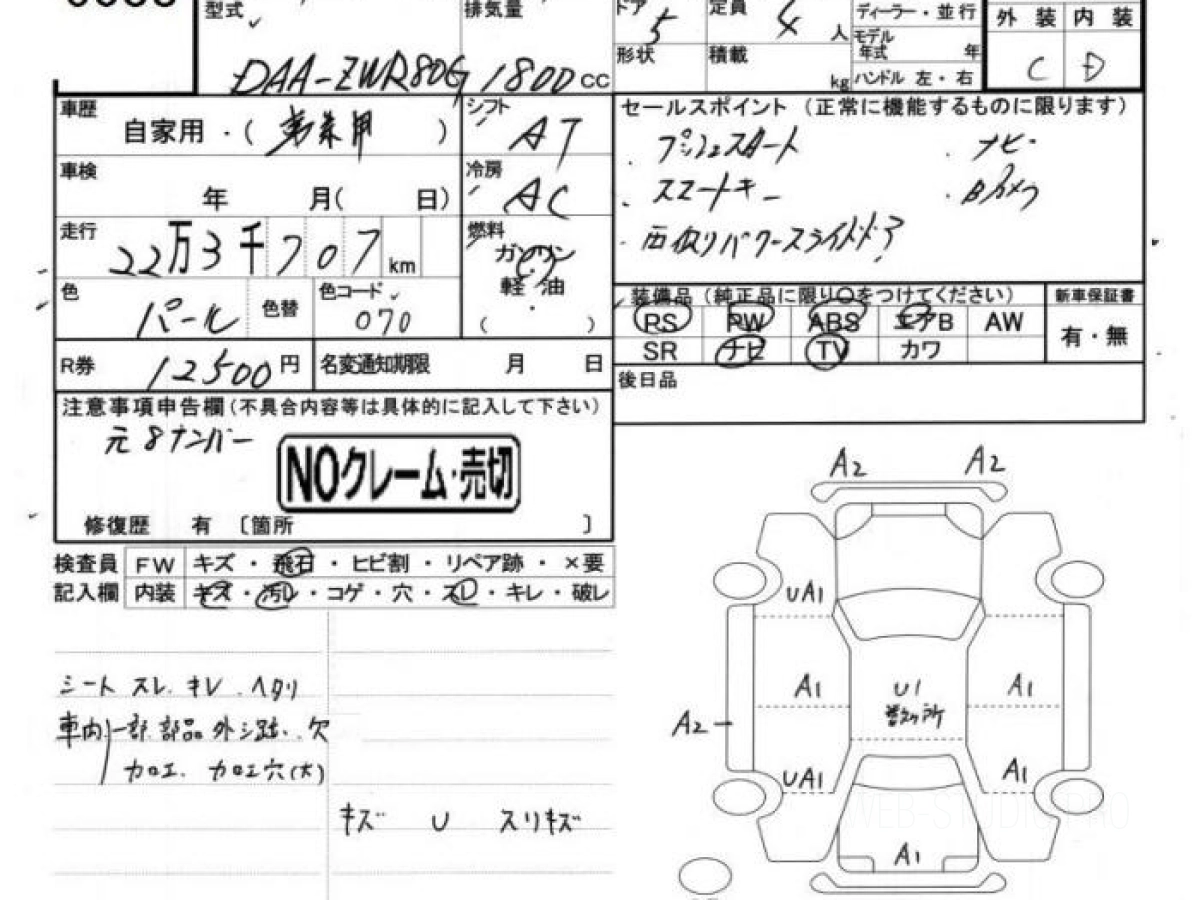 型式 排気量 ドア 定員 ディーラー・並行 外装 内装
5 4 人 モデル年式 年
DAA-ZWR80G 1800 cc 形状 積載 kg ハンドル 左・右 C D
車歴 自家用・( 事業用 ) シフト AT セールスポイント (正常に機能するものに限ります)
・プッシュスタート ・ナビ
車検 年 月( 日) 冷房 AC ・スマートキー ・Bカメラ
走行 22万3千707km 燃料 ガソリン ・両側パワースライドドア
軽・油
色 パール 色替 色コード 070 ( ・ )
装備品 (純正品に限り〇をつけてください) 新車保証書
PS PW ABS エアB AW 有・無
SR ナビ TV カワ
R券 12500円 名変通知期限 月 日 後日品
注意事項申告欄(不具合内容等は具体的に記入して下さい)
元8ナンバー
NOクレーム・売切
修復歴 有 〔箇所 〕
検査員 FW キズ・飛石・ヒビ割・リペア跡・×要
記入欄 内装 キズ・汚レ・コゲ・穴・スレ・キレ・破レ
シート スレ.キレ.ヘタリ
車内 一部.部品外シ跡.欠
加工.加工穴(大)
キズ U スリキズ
A2 A2
UA1
A1 U1 A1
A2
UA1 A1
A1
WEB-STUDIO PRO